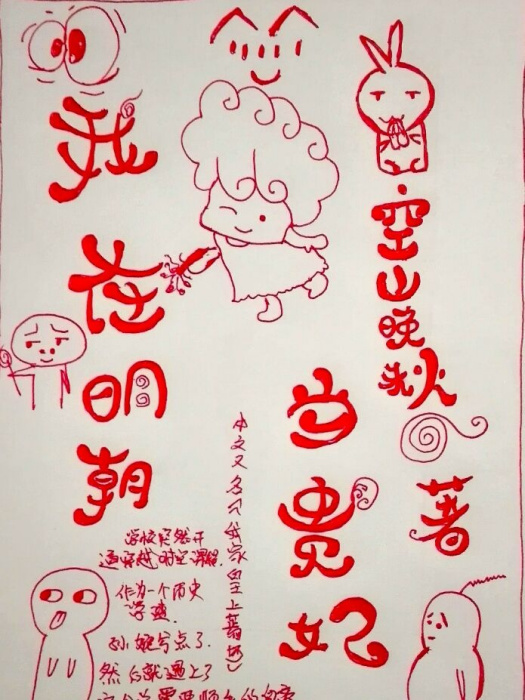 我在明朝
当贵妃
空山晚秋
著
本文又名《我家皇上萌
学校突然开
通穿越时空课程
作为一个历史
学渣
然后就遇上了